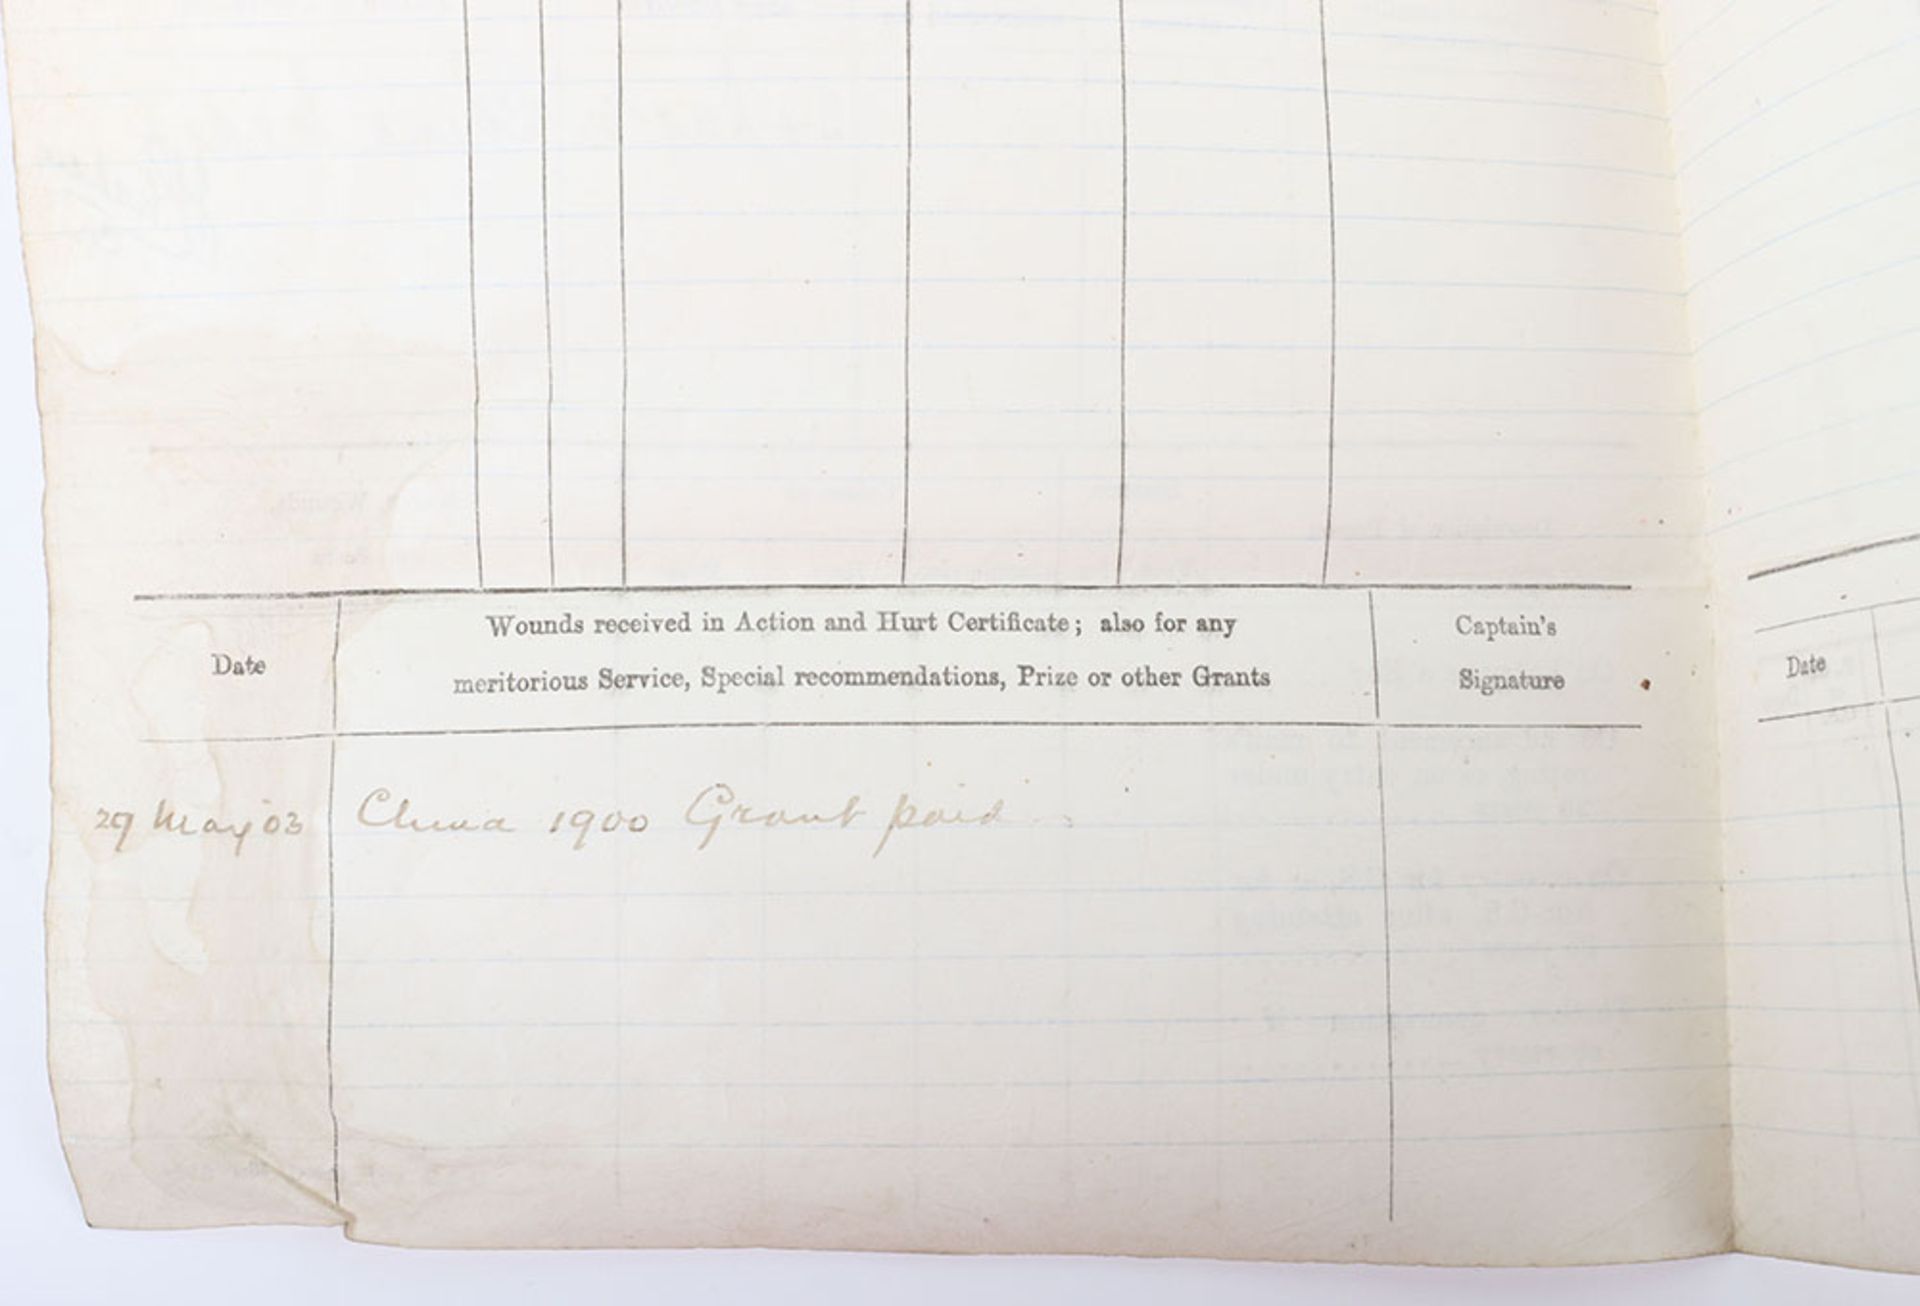 Date
Wounds received in Action and Hurt Certificate; also for any
meritorious Service, Special recommendations, Prize or other Grants
Captain's
Signature
29 May 03
China 1900 Grant paid
Date